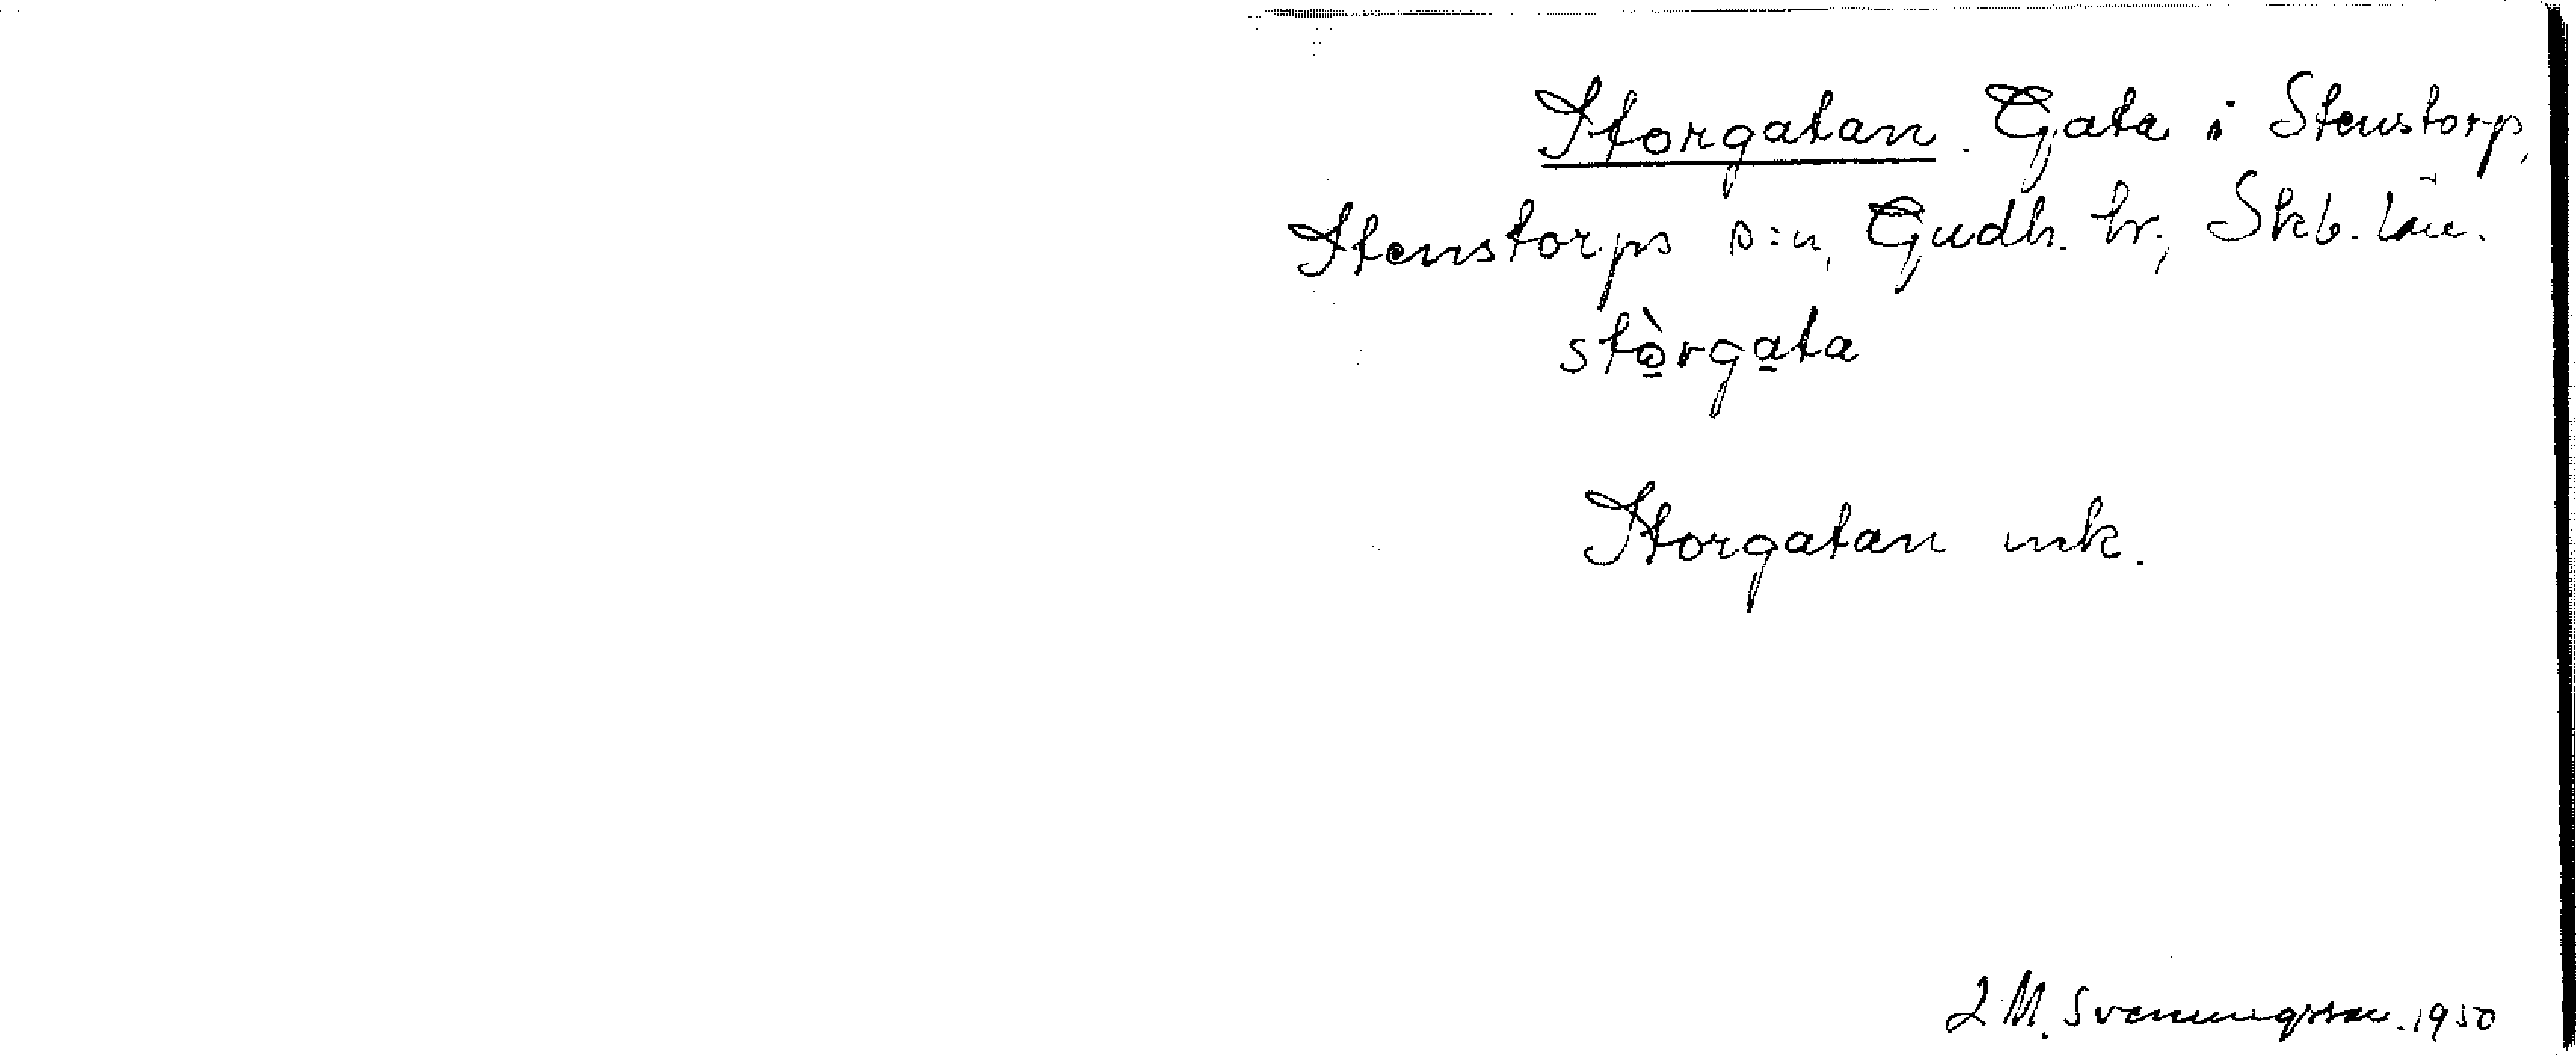 Storgatan. Gata i Stenstorp,
Stenstorps s:n, Gudh. hr., Skb. län.
stò̲rga̲ta
Storgatan mk.
L M. Svenungsson. 1950